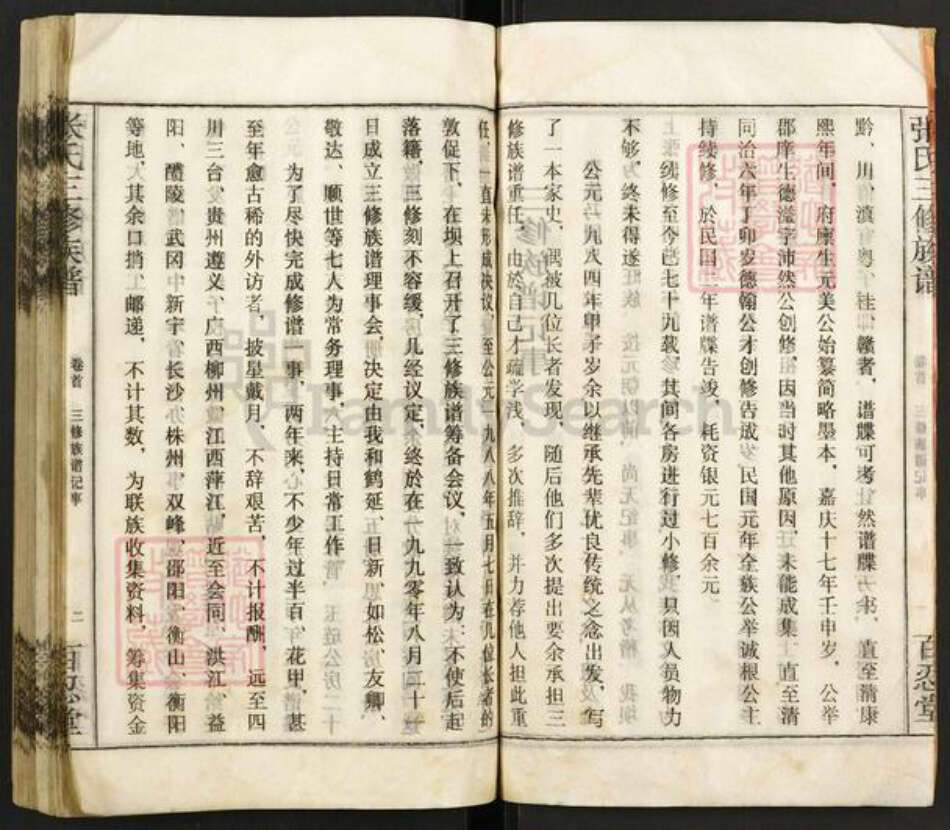 张氏三修族谱
黔、川、滇、粤、桂、赣者，谱牒可考，然谱牒一书，直至清康
熙年间，府庠生元美公始纂简略墨本，嘉庆十七年壬申岁，公举
郡庠生德滋字沛然公创修，因当时其他原因，未能成集，直至清
同治六年丁卯岁德翰公才创修告成，民国元年全族公举诚根公主
持续修，於民国二年谱牒告竣，耗资银元七百余元。
续修至今已七十九载，其间各房进行过小修，只因人员物力
不够，终未得遂。
公元一九八四年甲子岁余以继承先辈优良传统之念出发，写
了一本家史，偶被几位长者发现，随后他们多次提出要余承担三
修族谱重任，由於自己才疏学浅，多次推辞，并力荐他人担此重
任，一直未形成决议，至公元一九八八年五月七日在几位长者的
敦促下，在坝上召开了三修族谱筹备会议，一致认为：不使后起
落籍，三修刻不容缓，几经议定，终於在一九九零年八月二十
日成立三修族谱理事会，决定由我和鹤延、日新、如松、友卿、
敬达、顺世等七人为常务理事，主持日常工作。
为了尽快完成修谱一事，两年来，不少年过半百，花甲，甚
至年愈古稀的外访者，披星戴月，不辞艰苦，不计报酬，远至四
川三台，贵州遵义，广西柳州，江西萍江，近至会同、洪江、益
阳、醴陵、武冈、新宁、长沙、株州、双峰、邵阳、衡山、衡阳
等地，其余口捎、邮递，不计其数，为联族收集资料，筹集资金
卷首
三修族谱记事
二
百忍堂
百忍堂
张氏三修族谱
Family Search